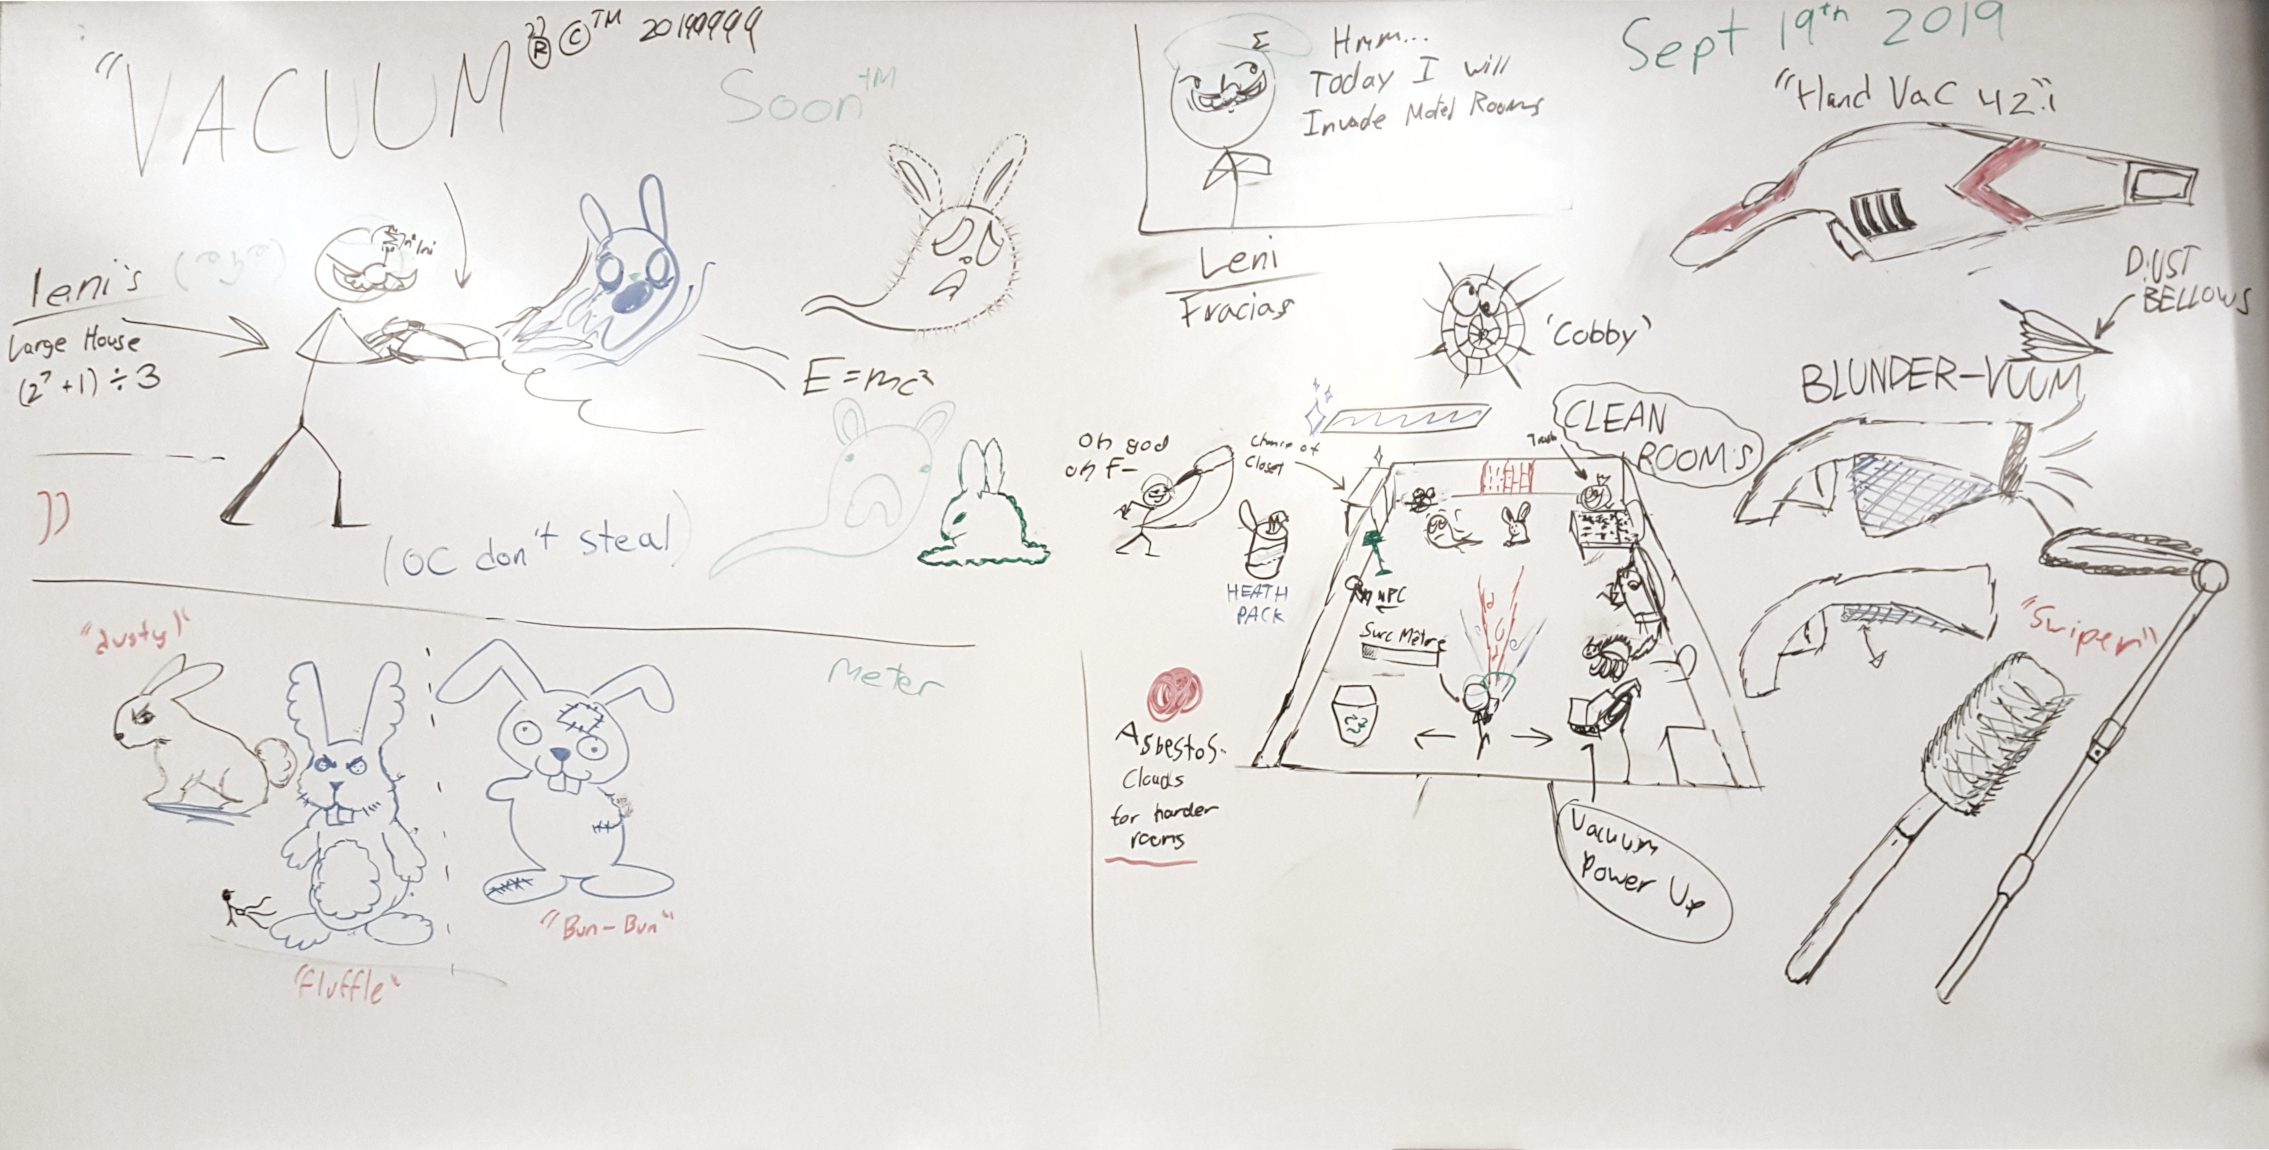 "VACUUM" ® © TM 20199999
Soon TM
leni's
Large House
(2⁷ + 1) ÷ 3
E = mc²
(OC don't steal)
"dusty"
"fluffle"
"Bun-Bun"
Meter
Hmm...
Today I will
Invade Motel Rooms
Leni
Fracias
Sept 19th 2019
"Hand Vac 42"i
DUST
BELLOWS
'Cobby'
BLUNDER-VUUM
CLEAN
ROOMS
Trash
Oh god
oh f-
Chance of
Closet
HEATH
PACK
NPC
Succ Mètre
"Sniper"
Asbestos
Clouds
for harder
rooms
Vacuum
Power Up